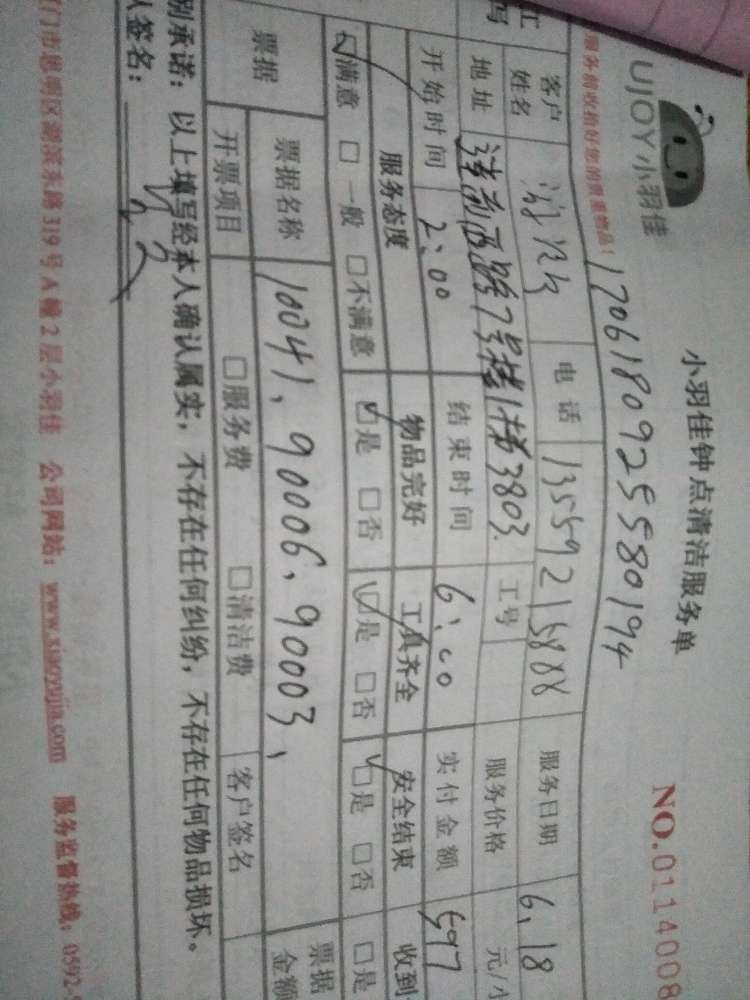 UJOY 小羽佳
小羽佳钟点清洁服务单
NO.0114008
服务前收拾好您的贵重物品!
1706180925580194
客户姓名 电话 13559215888 服务日期 6.18
地址 莲前西路7号楼1梯3803. 工号 服务价格 元/小
开始时间 2:00 结束时间 6:00 实付金额 597
服务态度 物品完好 工具齐全 安全结束 收到
满意 一般 不满意 是 否 是 否 是 否 是
票据 票据名称 10041、90006、90003、 票据金额
开票项目 服务费 清洁费 客户签名
别承诺:以上填写经本人确认属实,不存在任何纠纷,不存在任何物品损坏。
人签名:
门市思明区湖滨东路319号A幢2层小羽佳 公司网站:www.xiaoyujia.com 服务监督热线:0592-